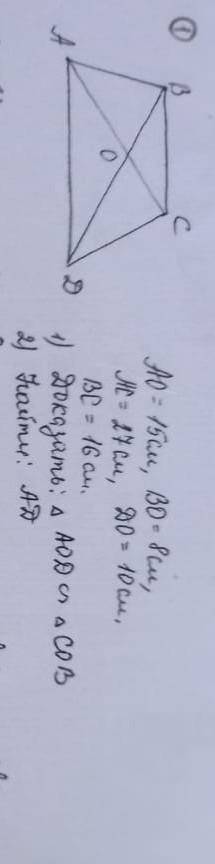 ①
A B C D O
AO = 15см, BO = 8см,
AC = 27см, DO = 10см,
BC = 16см.
1) Доказать: △ AOD ∽ △ COB
2) Найти: AD